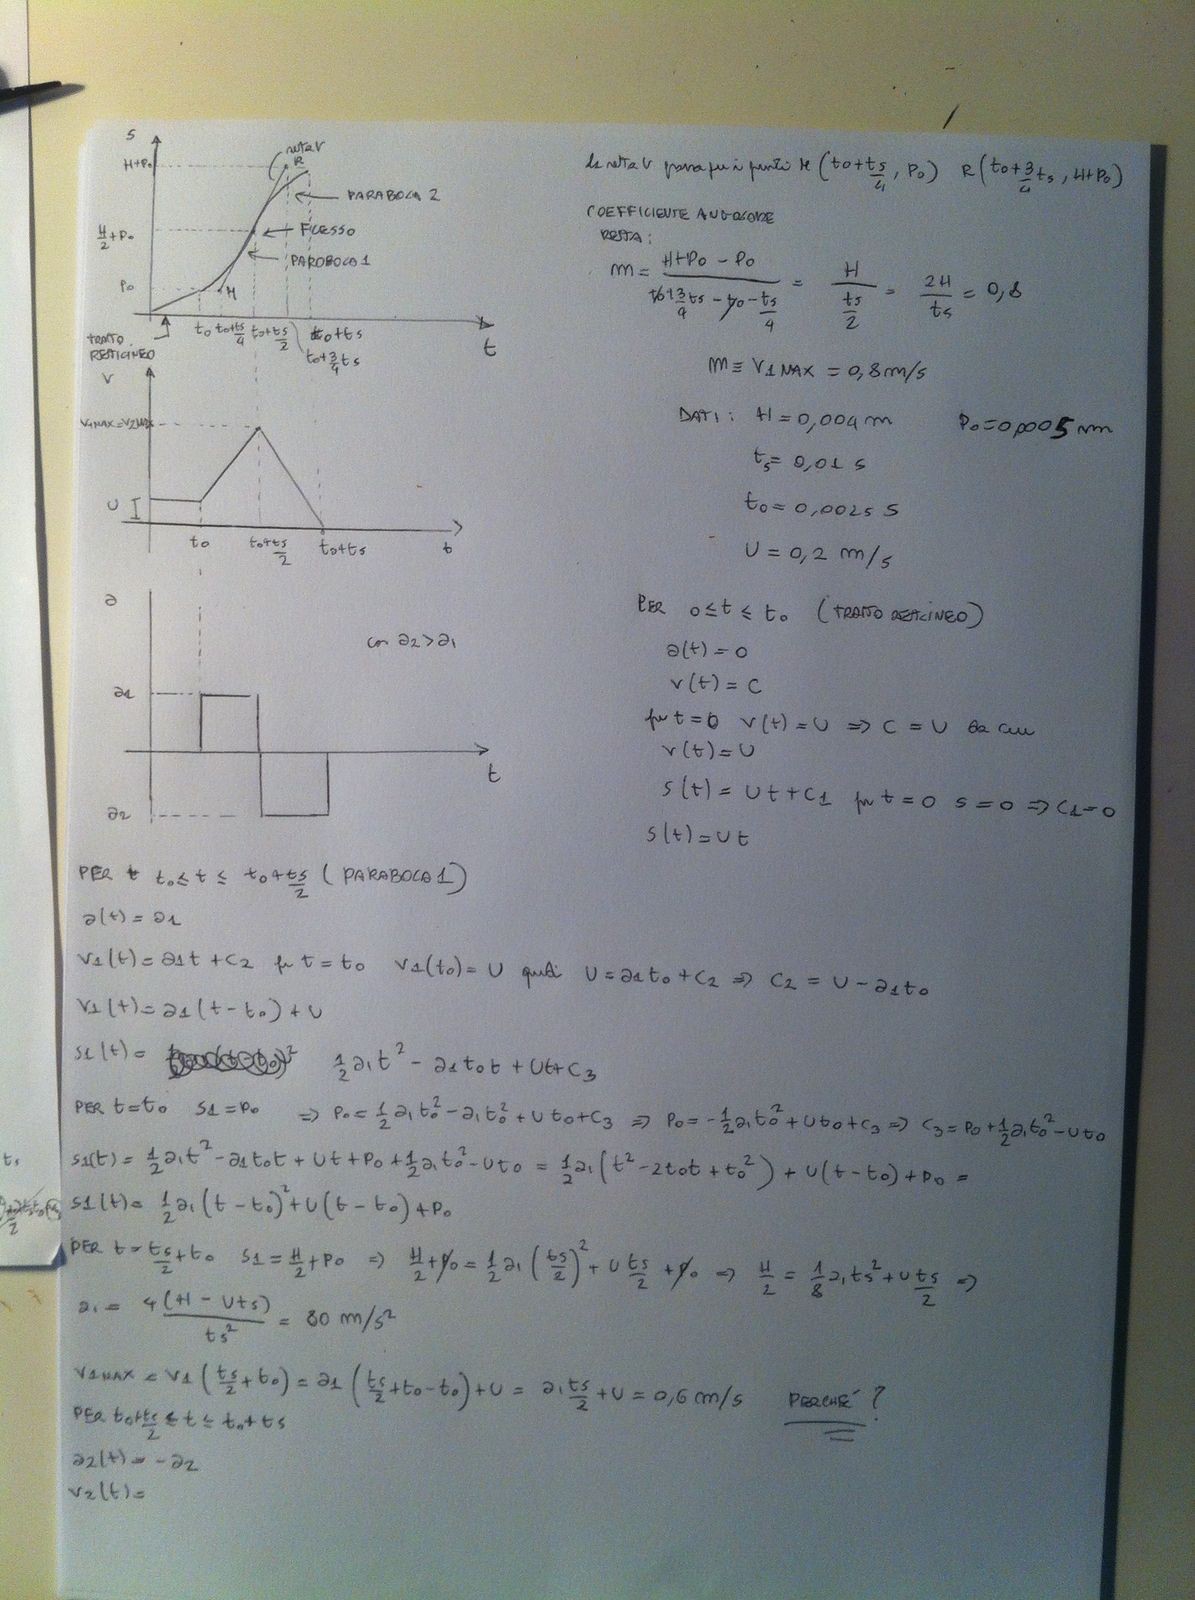 S
H+P₀
retta V
R
PARABOLA 2
H/2+P₀
FLESSO
PARABOLA 1
P₀
M
t₀ t₀+ts/4 t₀+ts/2 t₀+ts
t₀+3/4 ts
t
TRATTO
RETTILINEO
V
V1MAX=V2MAX
U
t₀ t₀+ts/2 t₀+ts t
a
con a2>a1
a1
t
a2
la retta V passa per i punti M (t₀+ts/4, P₀) R (t₀+3/4 ts, H+P₀)
COEFFICIENTE ANGOLARE
RETTA:
m = (H+P₀-P₀)/(t₀+3/4 ts - t₀ - ts/4) = H/(ts/2) = 2H/ts = 0,8
m ≡ V1MAX = 0,8 m/s
DATI: H = 0,004 m P₀=0,0005 m
ts = 0,01 s
t₀ = 0,0025 s
U = 0,2 m/s
PER 0 ≤ t ≤ t₀ (TRATTO RETTILINEO)
a(t) = 0
v(t) = C
per t=0 v(t)=U ⇒ C = U da cui
v(t) = U
s(t) = Ut+C1 per t=0 s=0 ⇒ C1=0
s(t) = Ut
PER t t₀ ≤ t ≤ t₀+ts/2 (PARABOLA 1)
a(t) = a1
v1(t) = a1t+C2 per t=t₀ v1(t₀)=U quindi U=a1t₀+C2 ⇒ C2 = U-a1t₀
v1(t)=a1(t-t₀)+U
s1(t)= 1/2 a1t² - a1t₀t + Ut+C3
PER t=t₀ s1=P₀ ⇒ P₀=1/2 a1t₀²-a1t₀²+Ut₀+C3 ⇒ P₀=-1/2 a1t₀²+Ut₀+C3 ⇒ C3=P₀+1/2 a1t₀²-Ut₀
s1(t)=1/2 a1t²-a1t₀t+Ut+P₀+1/2 a1t₀²-Ut₀ = 1/2 a1(t²-2t₀t+t₀²)+U(t-t₀)+P₀ =
s1(t)= 1/2 a1(t-t₀)²+U(t-t₀)+P₀
PER t=ts/2+t₀ s1=H/2+P₀ ⇒ H/2+P₀=1/2 a1(ts/2)²+U ts/2+P₀ ⇒ H/2 = 1/8 a1ts²+U ts/2 ⇒
a1= 4(H-Uts)/ts² = 80 m/s²
V1MAX = V1(ts/2+t₀) = a1(ts/2+t₀-t₀)+U = a1 ts/2+U = 0,6 m/s PERCHÉ?
PER t₀+ts/2 ≤ t ≤ t₀+ts
a2(t)=-a2
v2(t)=